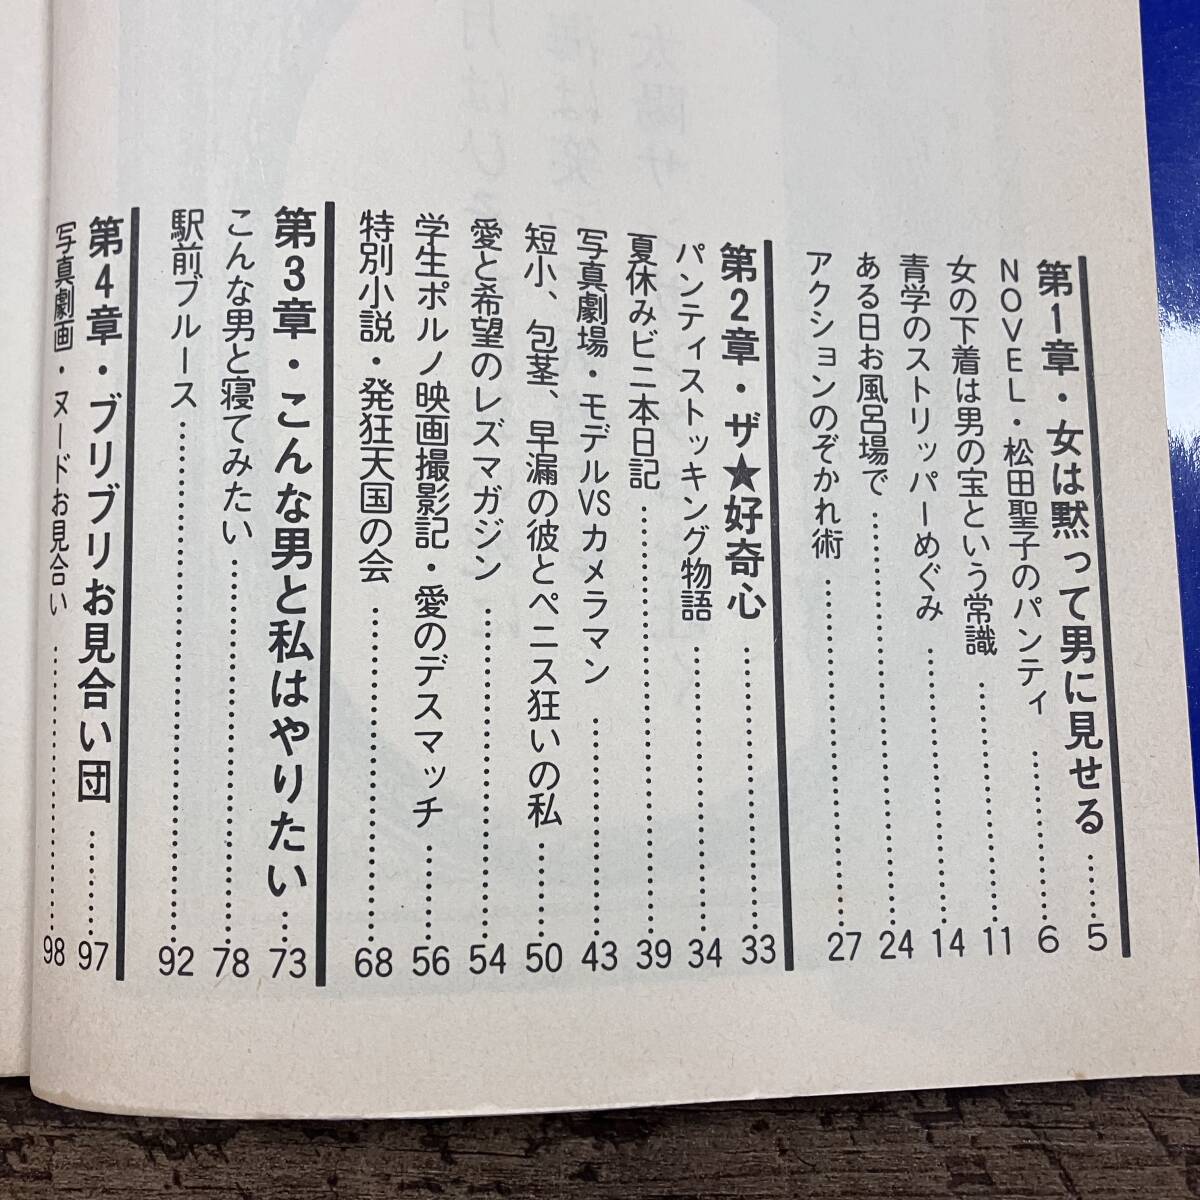 第1章・女は黙って男に見せる……5
NOVEL・松田聖子のパンティ……6
女の下着は男の宝という常識……11
青学のストリッパーめぐみ……14
ある日お風呂場で……24
アクションのぞかれ術……27
第2章・ザ★好奇心……33
パンティストッキング物語……34
夏休みビニ本日記……39
写真劇場・モデルVSカメラマン……43
短小、包茎、早漏の彼とペニス狂いの私……50
愛と希望のレズマガジン……54
学生ポルノ映画撮影記・愛のデスマッチ……56
特別小説・発狂天国の会……68
第3章・こんな男と私はやりたい……73
こんな男と寝てみたい……78
駅前ブルース……92
第4章・ブリブリお見合い団……97
写真劇画・ヌードお見合い……98